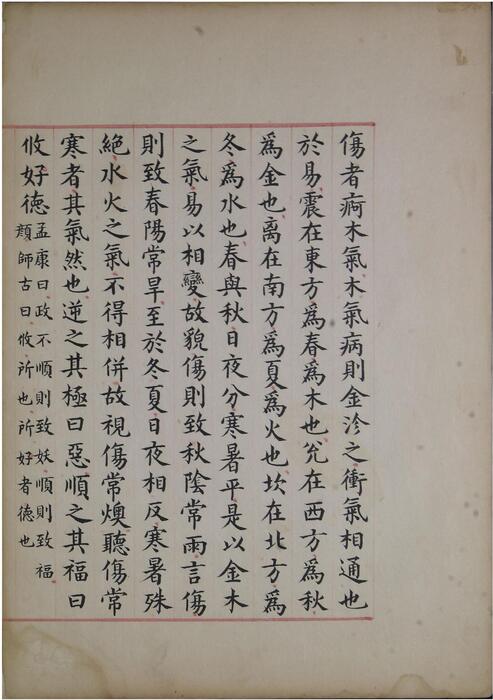 傷者痾木氣木氣病則金沴之衝氣相通也
於易震在東方爲春爲木也兊在西方爲秋
爲金也离在南方爲夏爲火也坎在北方爲
冬爲水也春與秋日夜分寒暑平是以金木
之氣易以相變故貌傷則致秋陰常雨言傷
則致春陽常旱至於冬夏日夜相反寒暑殊
絕水火之氣不得相併故視傷常燠聽傷常
寒者其氣然也逆之其極曰惡順之其福曰
攸好德
孟康曰政不順則致妖順則致福
顏師古曰攸所也所好者德也